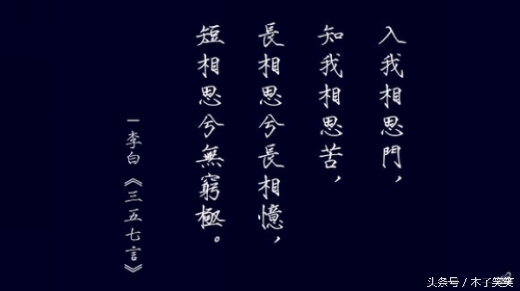 入我相思門，
知我相思苦，
長相思兮長相憶，
短相思兮無窮極。
－李白《三五七言》
头条号／木了笑笑